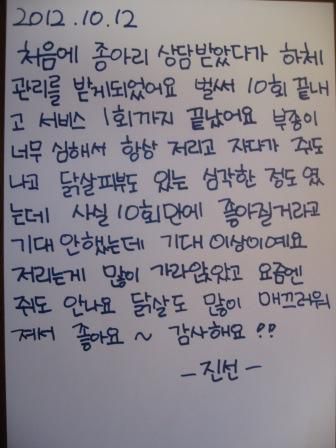 2012.10.12
처음에 종아리 상담받았다가 하체
관리를 받게되었어요 벌써 10회 끝내
고 서비스 1회까지 끝났어요 부종이
너무 심해서 항상 저리고 자다가 쥐도
나고 닭살피부도 있는 심각한 정도였
는데 사실 10회만에 좋아질거라고
기대 안했는데 기대 이상이예요
저리는게 많이 가라앉았고 요즘엔
쥐도 안나요 닭살도 많이 매끄러워
져서 좋아요 ~ 감사해요 !!
- 진선 -